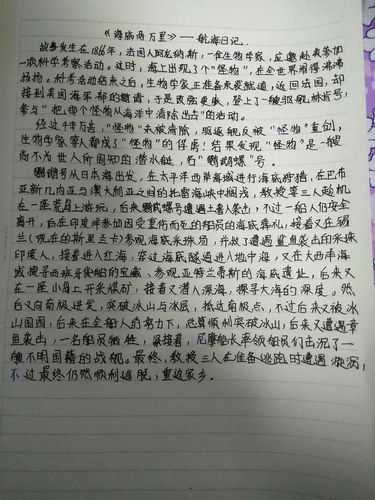 《海底两万里》——航海日记.
故事发生在1866年,法国人阿龙纳斯,一位生物学家,应邀赴美参加
一项科学考察活动。这时,海上出现了个"怪物",在全世界闹得沸沸
扬扬。科考活动结束之后,生物学家正准备束装就道,返回法国,却
接到美国海军部的邀请,于是改弦更张,登上了一艘驱舰林肯号,
参与"把那个怪物从海洋中清除出去"的活动。
经过千辛万苦,"怪物"未被清除,驱逐舰反被"怪物"重创,
生物学家等人都成了"怪物"的俘虏!结果发现"怪物"是一艘
尚不为世人所周知的潜水艇,名"鹦鹉螺"号。
鹦鹉号从日本海出发,在太平洋西岸海域进行海底狩猎,在巴布
亚新几内亚与澳大利亚之间的托雷海峡中搁浅,教授等三人趁机
在一座荒岛上游玩,后来鹦鹉螺号遭遇土著人袭击,不过一船人仍安全
离开,后在印度洋参加因受重伤而死的船员的海底葬礼,接着又在锡
兰(现在的斯里兰卡)参观海底采珠场,并救了遭遇鲨鱼袭击的采珠
印度人,接着进入红海,穿过海底隧道进入地中海,又在大西洋海
域搜寻西班牙货船的宝藏、参观亚特兰蒂斯的海底遗址,后来又
在一座小岛上开采煤矿,接着又潜入深海,探寻大海的深度。然
后又向南极进发,突破冰山与冰层,抵达南极点,不过后来又被冰
山围困,后来在全船人的努力下,总算顺利突破冰山,后来又遭遇章
鱼袭击,一名船员牺牲,紧接着,尼摩船长率领船员们击沉了一
艘不明国籍的战舰。最终,教授三人在准备逃跑时遭遇漩涡,
不过最终仍然顺利逃脱,重返家乡。